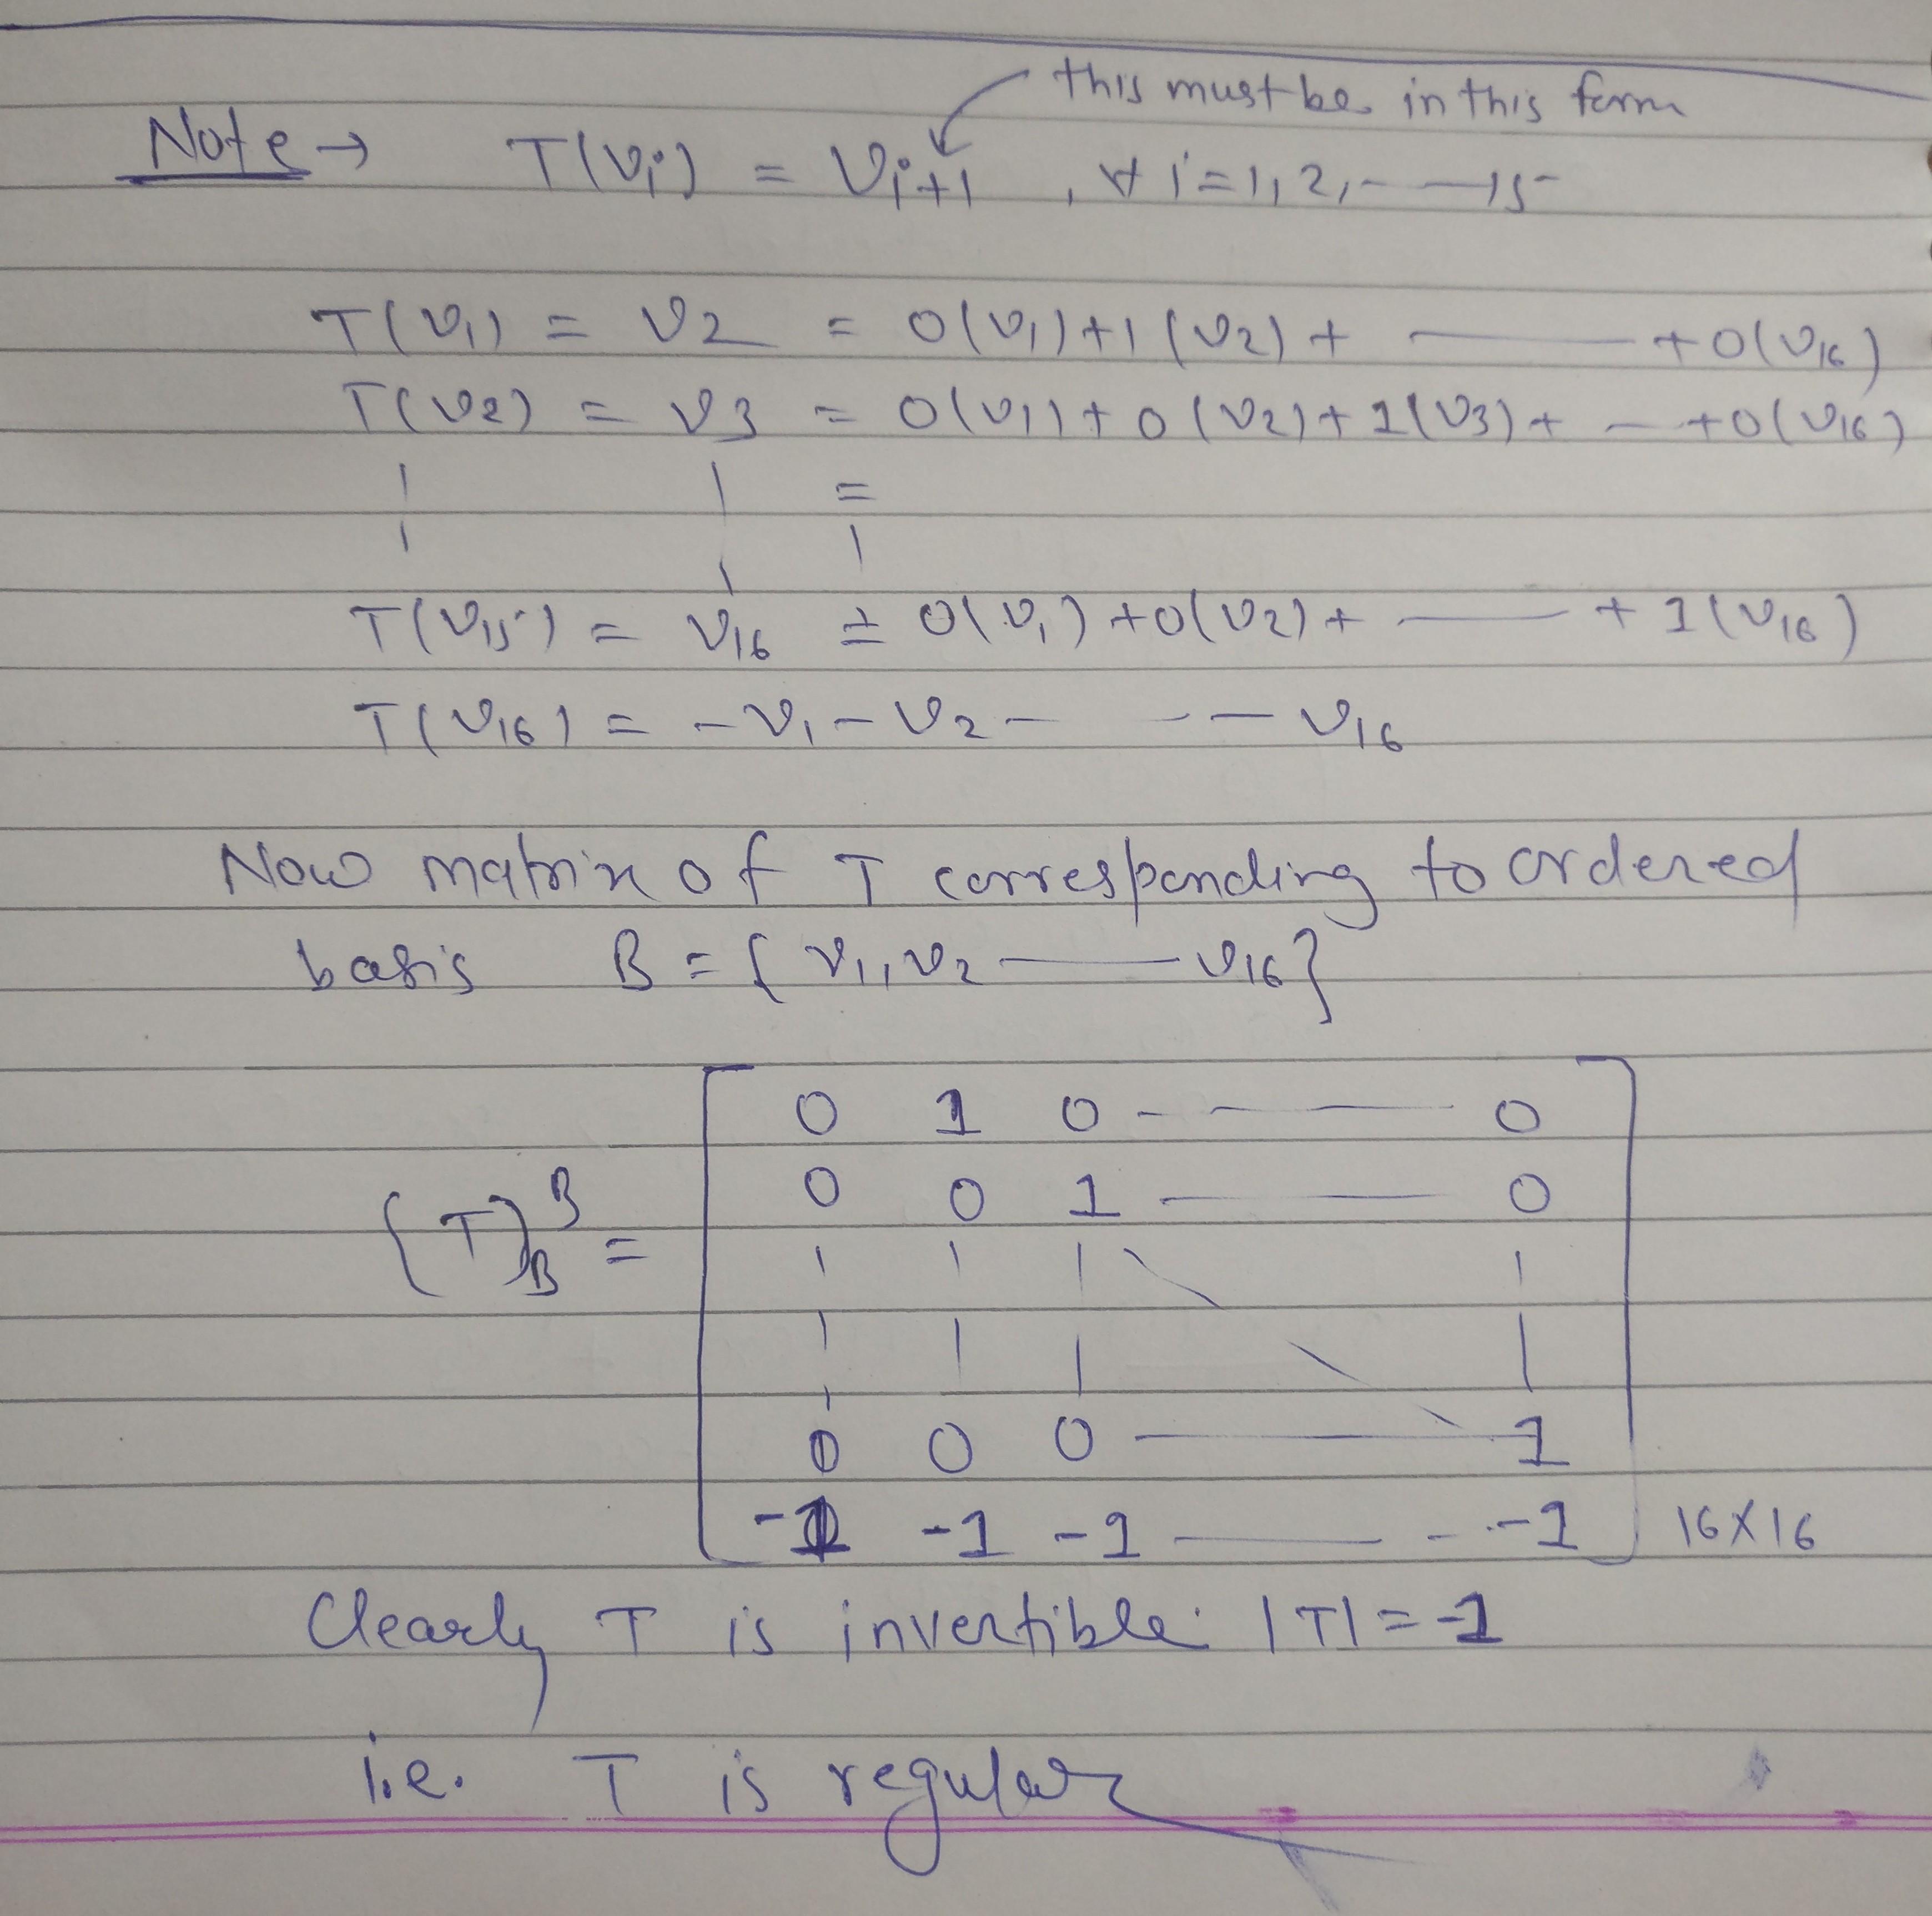 this must be in this form
Note → T(vi) = vi+1 , ∀ i=1,2,- —15
T(v1) = v2 = 0(v1)+1(v2)+ —— +0(v16)
T(v2) = v3 = 0(v1)+0(v2)+1(v3)+ — +0(v16)
| | =
| | |
T(v15) = v16 = 0(v1)+0(v2)+ —— + 1(v16)
T(v16) = -v1-v2- - — v16
Now matrix of T corresponding to ordered
basis B = { v1,v2 —— v16}
0 1 0 - - —— 0
0 0 1 —— 0
{T}B B =
0 0 0 —— 1
-1 -1 -1 —— - -1 16X16
Clearly T is invertible. |T| = -1
i.e. T is regular